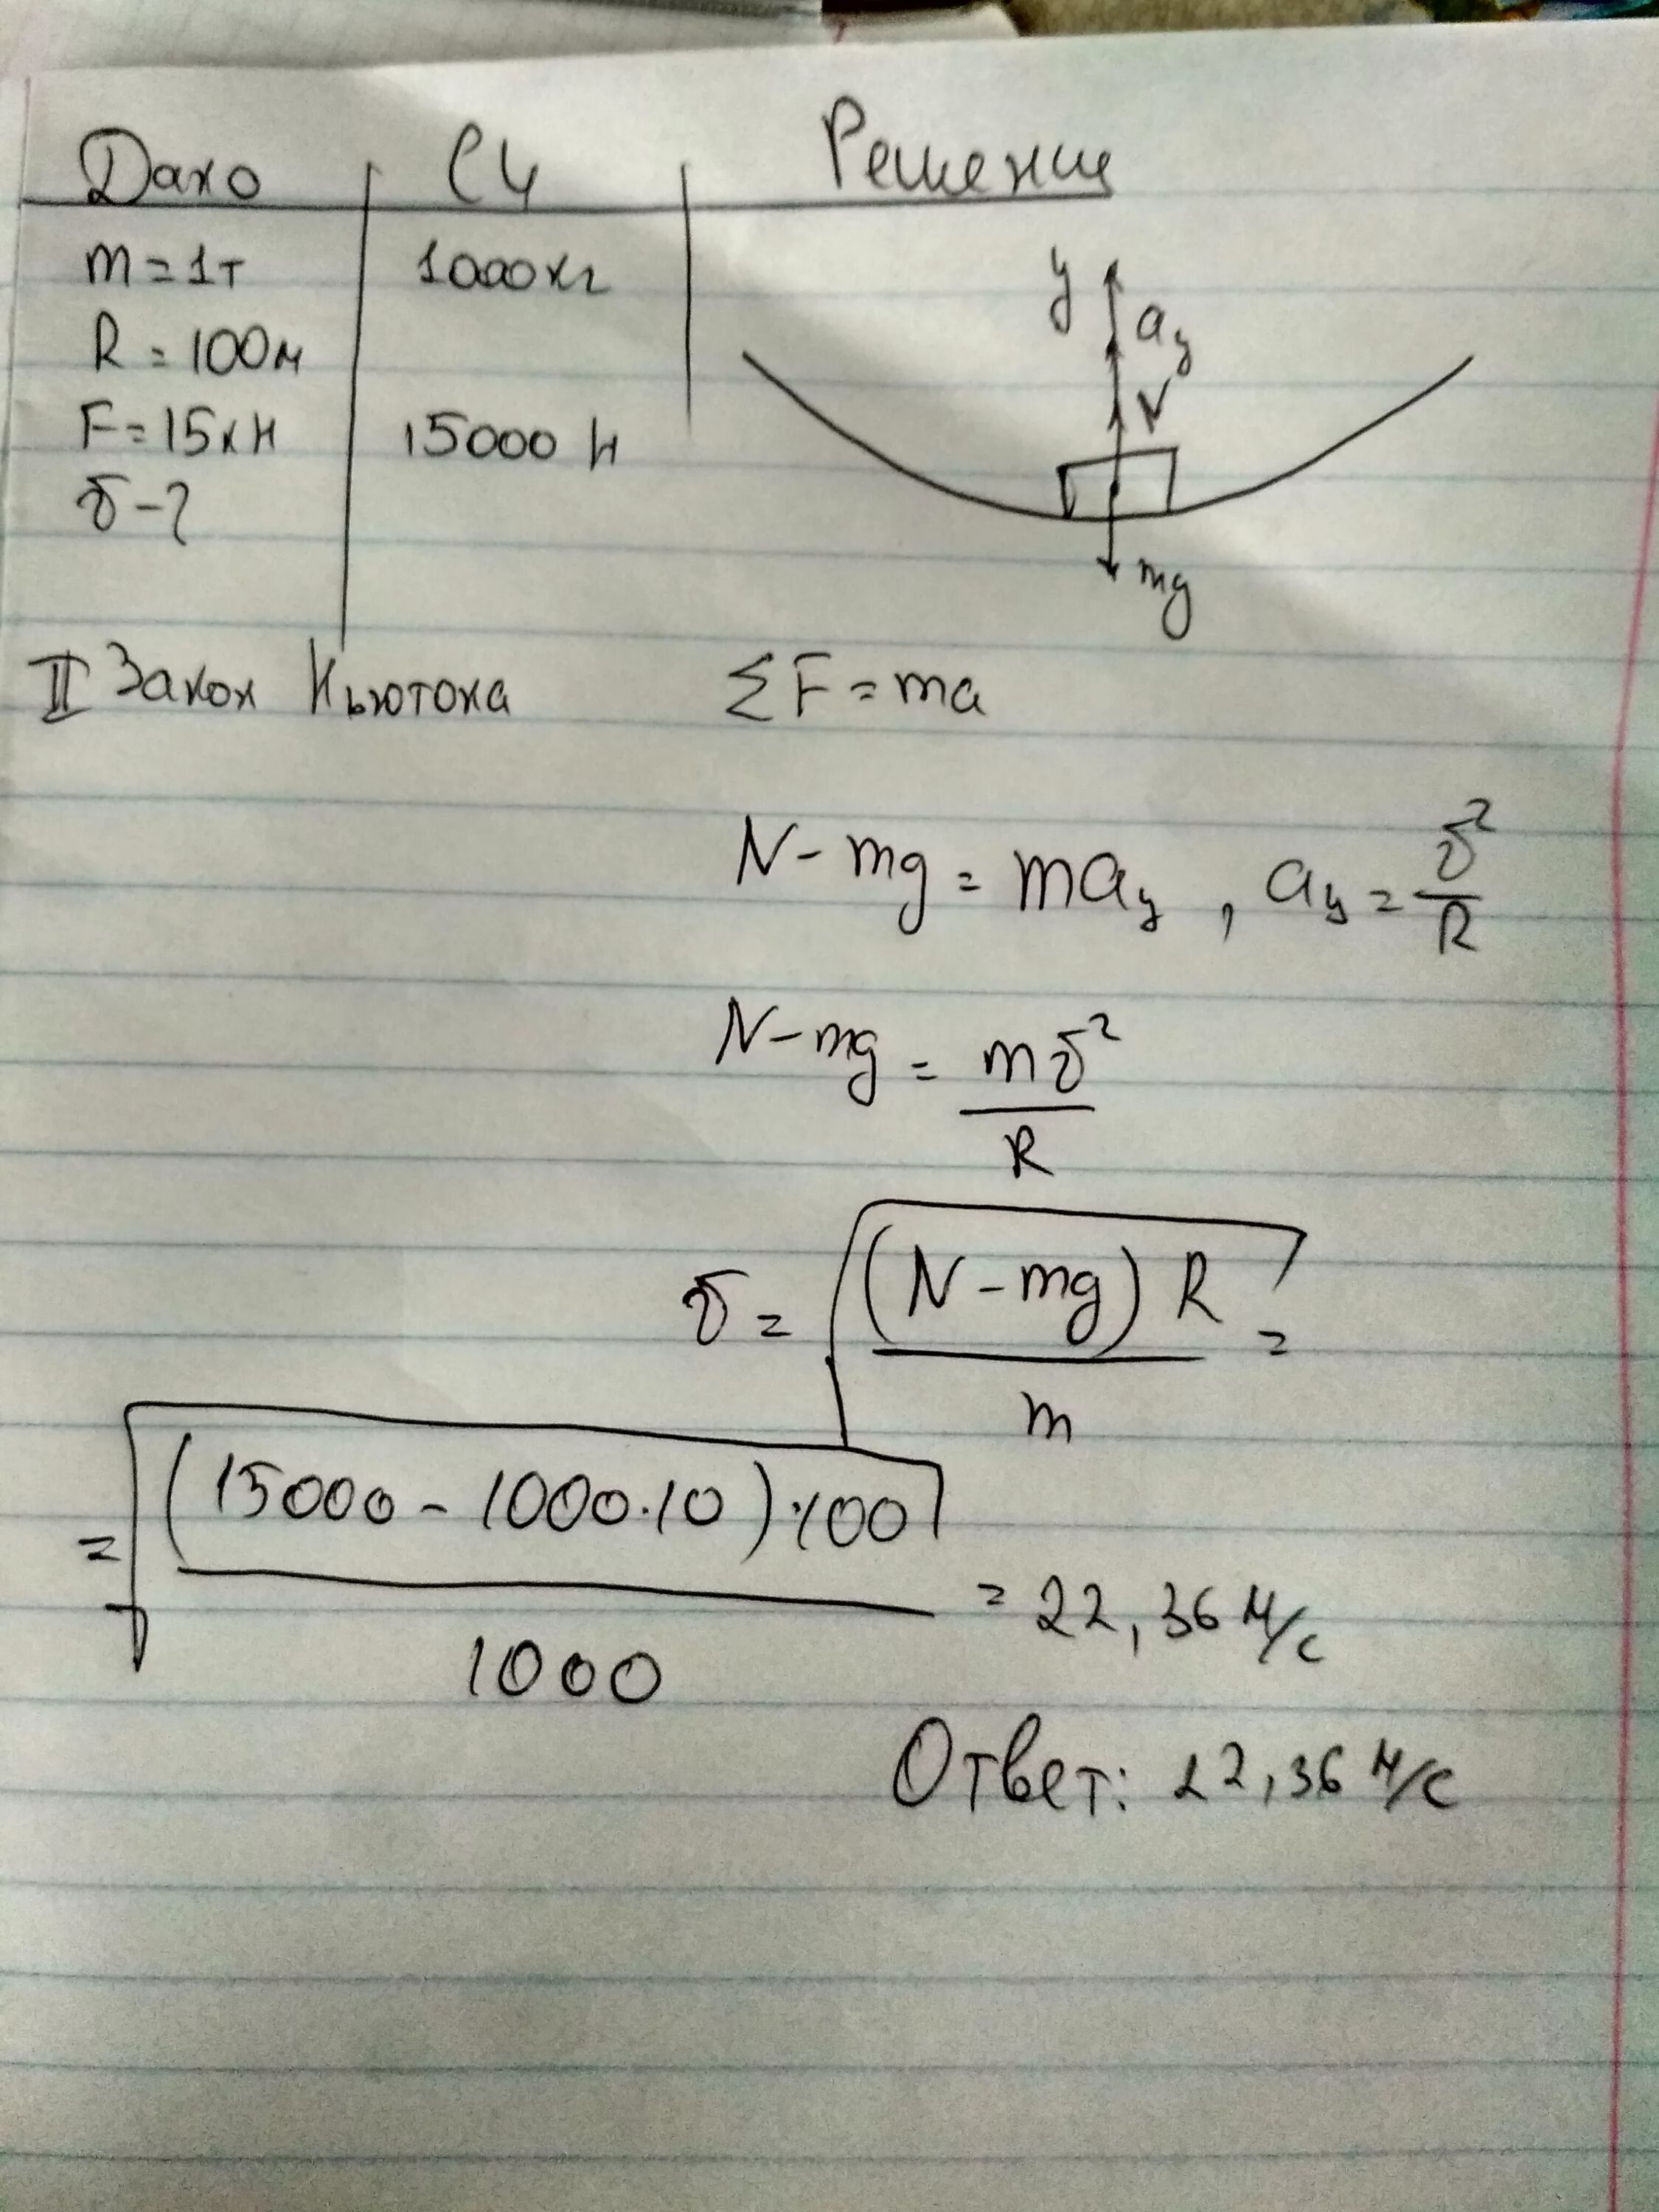 Дано СИ Решение
m = 1т 1000кг
R = 100м
F = 15кН 15000 Н
υ - ?
y
a_y
N
mg
II Закон Ньютона ΣF = ma
N - mg = ma_y , a_y = υ²/R
N - mg = mυ²/R
υ = √((N - mg) R / m) =
= √((15000 - 1000·10)·100 / 1000) = 22,36 м/с
Ответ: 22,36 м/с